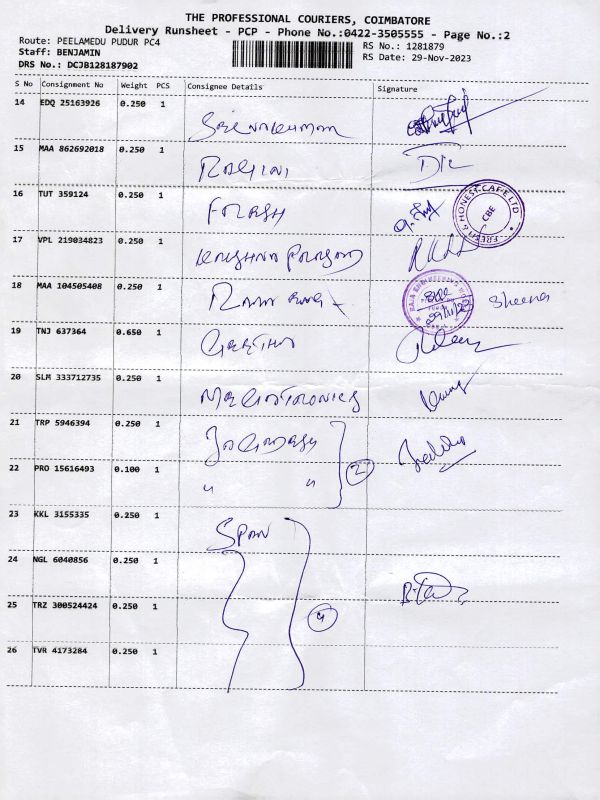 THE PROFESSIONAL COURIERS, COIMBATORE
Delivery Runsheet - PCP - Phone No.:0422-3505555 - Page No.:2
Route: PEELAMEDU PUDUR PC4
RS No.: 1281879
Staff: BENJAMIN
RS Date: 29-Nov-2023
DRS No.: DCJB128187902
S No Consignment No Weight PCS Consignee Details Signature
14 EDQ 25163926 0.250 1
15 MAA 862692018 0.250 1 RAGINI
16 TUT 359124 0.250 1
FRESH & HONEST CAFE LTD CBE
17 VPL 219034823 0.250 1 KRISHNA PRASAD
18 MAA 104505408 0.250 1
Sheena
19 TNJ 637364 0.650 1
20 SLM 333712735 0.250 1
21 TRP 5946394 0.250 1
22 PRO 15616493 0.100 1 " " 2
23 KKL 3155335 0.250 1 SPAN
24 NGL 6040856 0.250 1
25 TRZ 300524424 0.250 1 4
26 TVR 4173284 0.250 1